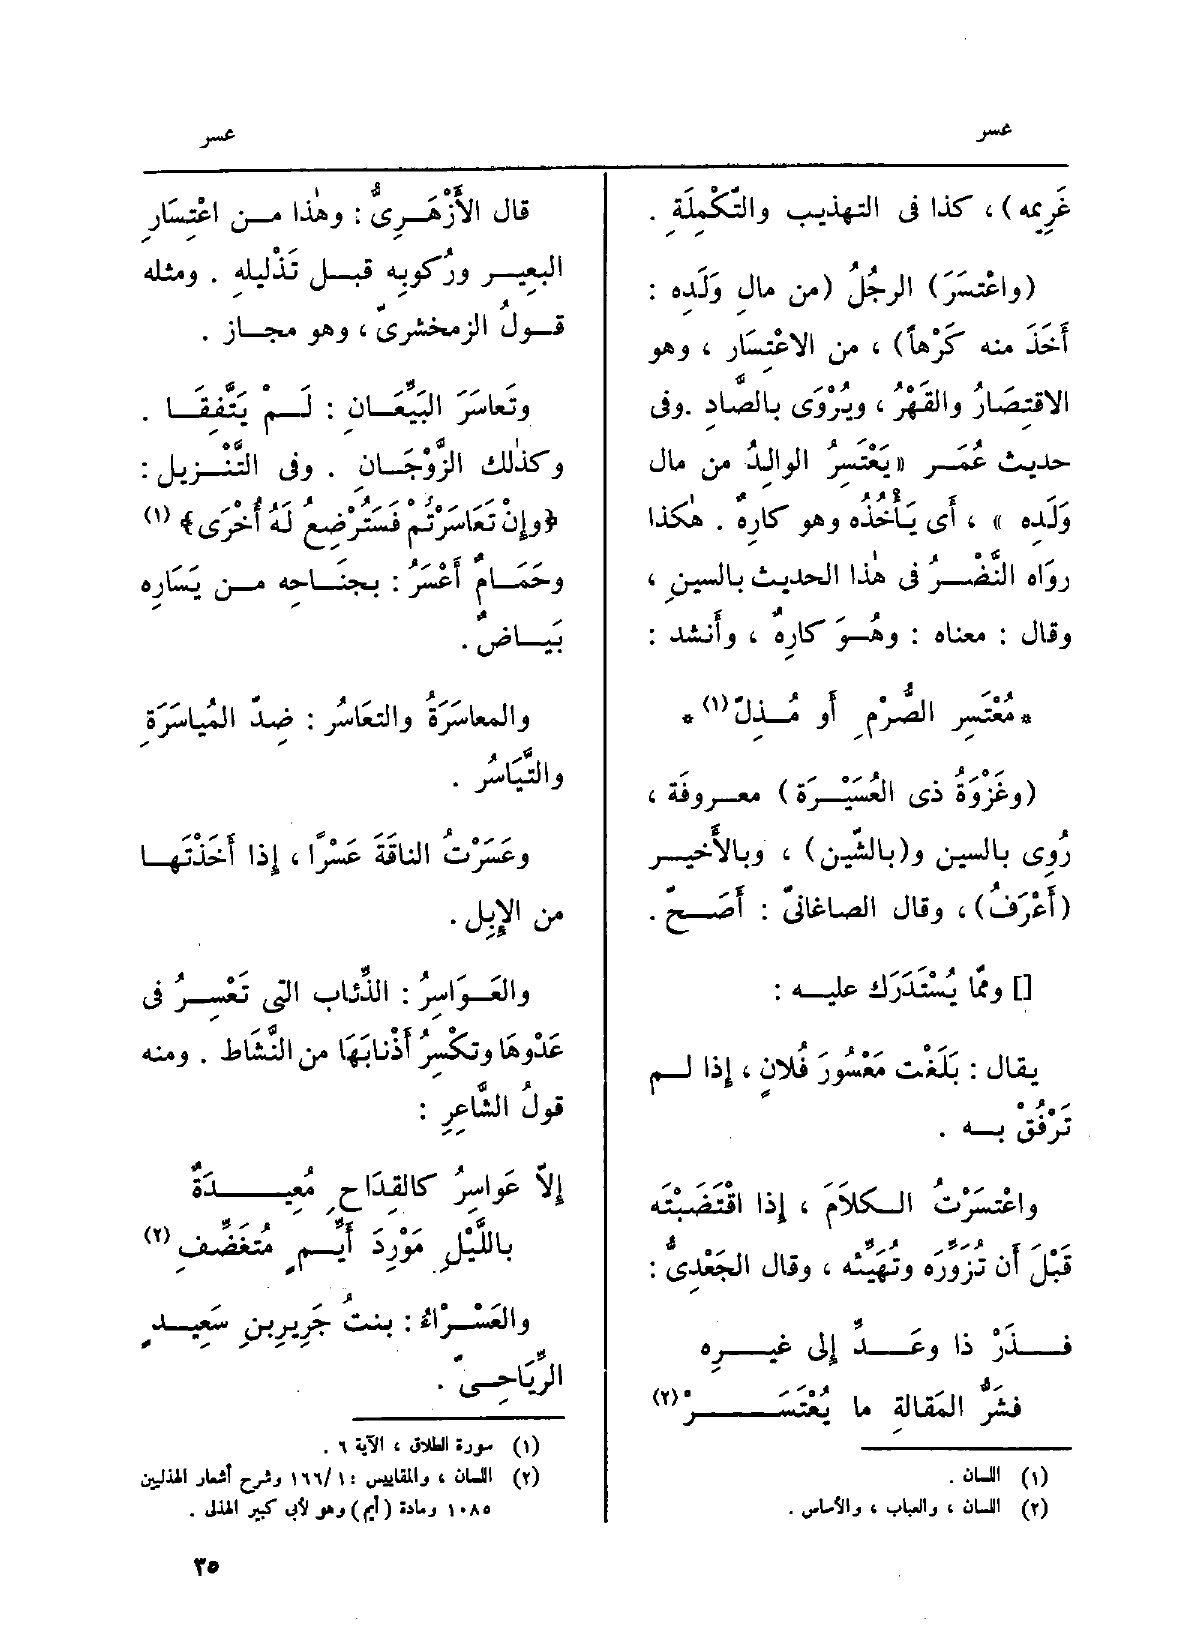 عسر
عسر
غَرِيمِه) ، كذا فى التهذِيب والتَّكْمِلَةِ .
(واعْتَسَرَ) الرجُلُ (من مالِ وَلَدِه :
أَخَذَ منه كَرْهاً) ، من الاعْتِسَار ، وهو
الاقتِصَارُ والقَهْرُ ، ويُرْوَى بالصَّادِ . وفى
حديث عُمَر « يَعْتَسِرُ الوالِدُ من مال
وَلَدِه » ، أَى يَأْخُذُه وهو كارِهٌ . هٰكذا
رواه النَّضْرُ فى هٰذا الحديث بالسينِ ،
وقال : معناه : وهُوَ كارِهٌ ، وأَنشد :
* مُعْتَسِر الصُّرْمِ أَو مُذِلّ (١) *
(وغَزْوَةُ ذى العُسَيْرَة) معروفَة ،
رُوِى بالسين و(بالشّين) ، وبالأَخير
(أَعْرَفُ) ، وقال الصاغانىّ : أَصَحّ .
[] وممّا يُسْتَدْرَك عليه :
يقال : بَلَغْت مَعْسُورَ فُلانٍ ، إِذا لم
تَرْفُقْ به .
واعْتسَرْتُ الكَلاَمَ ، إِذا اقْتَضَبْتَه
قَبْلَ أَن تُزَوِّرَه وتُهَيِّئَه ، وقال الجَعْدِىُّ :
فذَرْ ذا وعَدِّ إِلى غيرِه
فشَرُّ المَقالَةِ ما يُعْتَسَرْ (٢)
(١) اللسان .
(٢) اللسان ، والعباب ، والأساس .
قال الأَزْهَرِىُّ : وهٰذا من اعْتِسَارِ
البعِيرِ ورُكوبِه قبل تَذْلِيلِهِ . ومثله
قولُ الزمخشرىّ ، وهو مجاز .
وتَعاسَرَ البَيِّعَانِ : لَمْ يَتَّفِقَا .
وكذٰلك الزَّوْجَانِ . وفى التَّنْزِيل :
﴿وإِنْ تَعَاسَرْتُمْ فَسَتُرْضِعُ لَهُ أُخْرَى﴾ (١)
وحَمَامٌ أَعْسَرُ : بجنَاحِه من يَسَارِه
بَيَاضٌ .
والمعاسَرَةُ والتعَاسُر : ضِدّ المُياسَرَةِ
والتَّيَاسُر .
وعَسَرْتُ الناقَةَ عَسْرًا ، إِذا أَخَذْتَها
من الإِبِل .
والعَوَاسِرُ : الذِّئاب التى تَعْسِرُ فى
عَدْوِهَا وتكْسِرُ أَذْنابَهَا من النَّشَاط . ومنه
قولُ الشَّاعِرِ :
إِلاّ عَواسِرُ كالقِدَاحِ مُعِيدَةٌ
بِاللَّيْلِ مَوْرِدَ أَيِّمٍ مُتَغَضِّفِ (٢)
والعَسْرَاءُ : بنتُ جَرِيرِ بنِ سَعِيدٍ
الرِّيَاحِىّ .
(١) سورة الطلاق ، الآية ٦ .
(٢) اللسان ، والمقاييس : ١/١٦٦ وشرح أشعار الهذليين
١٠٨٥ ومادة (أيم) وهو لأبى كبير الهذلى .
٣٥